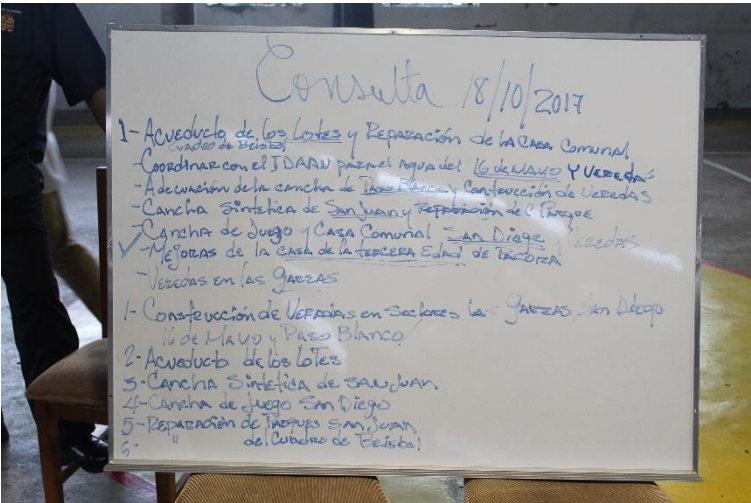 Consulta 18/10/2017
1- Acueducto de los Lotes y Reparación de la Casa Comunal
Cuadro de Beisbol
-Coordinar con el IDAAN para el agua del 16 de Mayo y Veredas
-Adecuación de la cancha de Paso Blanco y Construcción de Veredas
-Cancha Sintética de San Juan y Reparación del Parque
-Cancha de Juego y Casa Comunal San Diego y Veredas
-Mejoras de la casa de la tercera Edad de
-Veredas en las Garzas
1- Construcción de Veredas en Sectores las Garzas San Diego
16 de Mayo y Paso Blanco
2- Acueducto de los Lotes
3- Cancha Sintética de San Juan
4- Cancha de Juego San Diego
5- Reparación de Parques San Juan
6- " del Cuadro de Beisbol